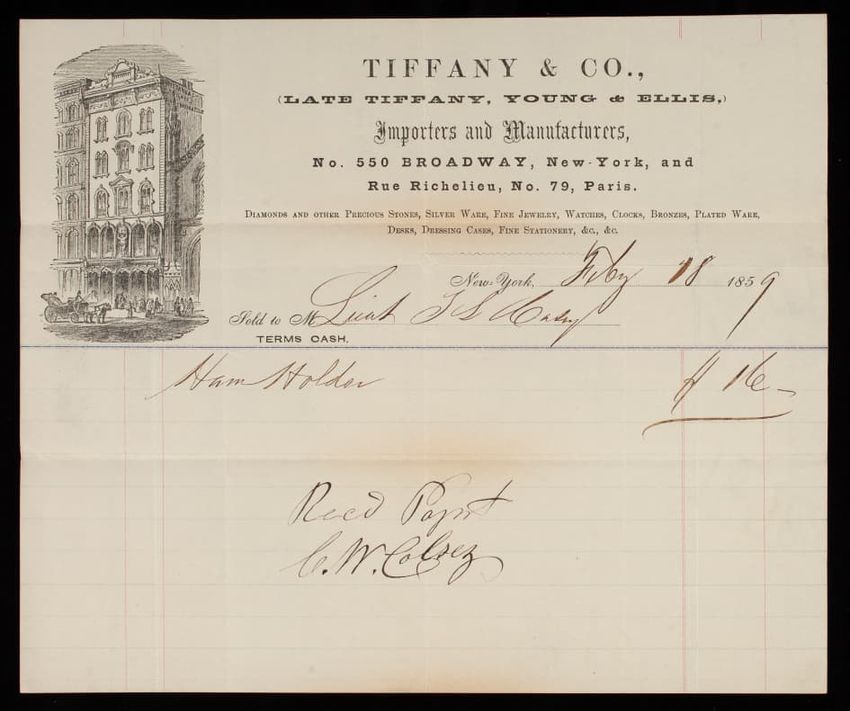 TIFFANY & CO.,
(LATE TIFFANY, YOUNG & ELLIS,)
Importers and Manufacturers,
No. 550 BROADWAY, New-York, and
Rue Richelieu, No. 79, Paris.
Diamonds and other Precious Stones, Silver Ware, Fine Jewelry, Watches, Clocks, Bronzes, Plated Ware,
Desks, Dressing Cases, Fine Stationery, &c., &c.
New-York, Feby 18 1859
Sold to M Lieut T L Casey
TERMS CASH.
Ham Holder $ 16 –
Recd Paymt
C. W.